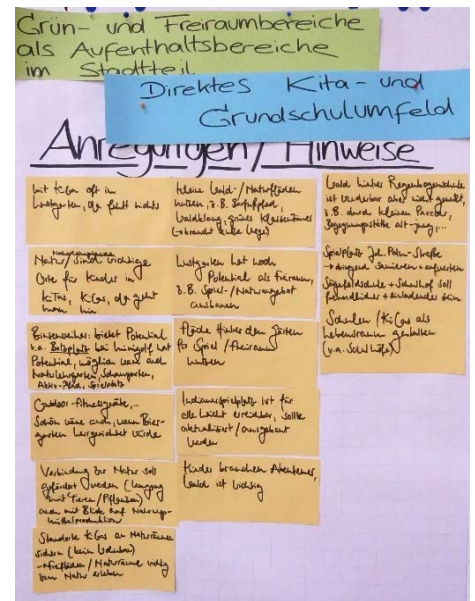 Grün- und Freiraumbereiche
als Aufenthaltsbereiche
im Stadtteil
Direktes Kita- und
Grundschulumfeld
Anregungen / Hinweise
mit KiGa oft im
Lustgarten, da fehlt nichts
Natur / sind wichtige
Orte für Kinder in
KiTas, KiGas, da geht
man hin
bietet Potential
v.a. Bolzplatz bei Minigolf hat
Potential, möglich wäre auch
Naturlehrgarten, Schaugarten,
Spielplatz
Outdoor-fitnessgeräte,
Schön wäre auch, wenn Bier-
garten hergerichtet würde
Verbindung zur Natur soll
gefördert werden (Umgang
mit Tieren / Pflanzen)
auch mit Blick auf Nahrungs-
mittelproduktion
Standorte KiGas an Naturräumen
sichern (kein
/ Naturräume wichtig
zum Natur erleben
kleine Wald- / Naturflächen
nutzen, z.B.
Waldklang, grünes Klassenzimmer
(-braucht kurze Wege)
Lustgarten hat noch
Potential als Freiraum,
z.B. Spiel- / Naturangebot
ausbauen
Fläche hinter den Gärten
für Spiel / Freiraum
nutzen
Indianerspielplatz ist für
alle leicht erreichbar, sollte
aktualisiert / ausgebaut
werden
Kinder brauchen Abenteuer,
Wald ist wichtig
Wald hinter Regenbogenschule
ist wunderbar aber nicht genutzt,
z.B. durch kleinen Parcour,
alt-jung,...
Spielplatz Joh. -Straße
dringend sanieren + aufwerten
Sägefeldschule + Schulhof soll
freundlicher + einladender sein
Schulen / KiGas als
Lebensraum gestalten
(v.a. Schulhöfe)